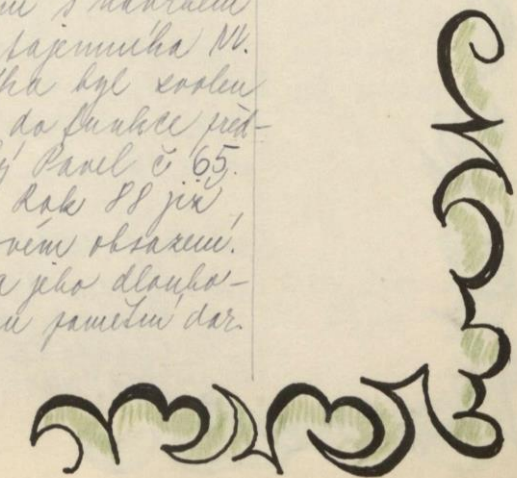 s návrhem
tajemníka NV.
byl zvolen
do funkce před-
Pavel č 65.
Rok 88 již
obsazení.
jeho dlouho-
pamětní dar.